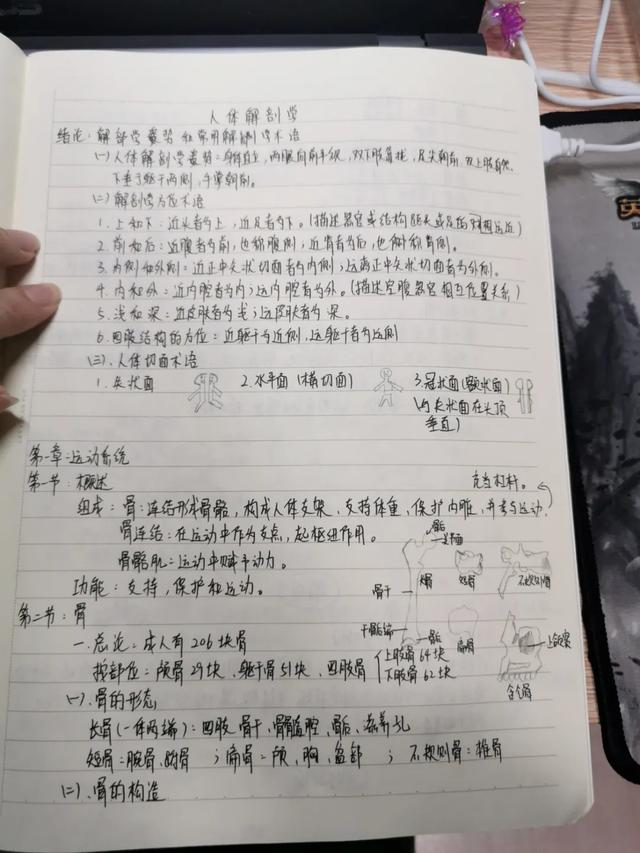 人体解剖学
绪论：解剖学姿势和常用解剖学术语
(一)人体解剖学姿势：身体直立，两眼向前平视，双下肢靠拢，足尖朝前，双上肢自然
下垂于躯干两侧，手掌朝前。
(二)解剖学方位术语
1.上和下：近头者为上，近足者为下。(描述器官或结构距头或足的相对远近)
2.前和后：近腹者为前，也称腹侧；近背者为后，也称背侧。
3.内侧和外侧：近正中矢状切面者为内侧；远离正中矢状切面者为外侧。
4.内和外：近内腔者为内；远内腔者为外。(描述空腔器官相互位置关系)
5.浅和深：近皮肤者为浅；远皮肤者为深。
6.四肢结构的方位：近躯干为近侧，远躯干者为远侧
(三).人体切面术语
1.矢状面 2.水平面(横切面) 3.冠状面(额状面)
(与矢状面在头顶
垂直)
第一章：运动系统
第一节：概述 充当杠杆。
组成：骨：连结形成骨骼，构成人体支架，支持体重，保护内脏，并参与运动.
骨连结：在运动中作为支点，起枢纽作用。
骨骼肌：运动中赋予动力。
功能：支持，保护和运动。
骨骺
骨干 长骨 短骨 不规则骨
干骺端 骨骺 扁骨 上颌窦
含气骨
第二节：骨
一.总论：成人有206块骨
按部位：颅骨29块、躯干骨51块、四肢骨(上肢骨64块
下肢骨62块
(一).骨的形态
长骨(一体两端)：四肢、骨干、骨髓腔、骨骺、滋养孔
短骨：腕骨、跗骨；扁骨：颅、胸、盆部；不规则骨：椎骨
(二).骨的构造